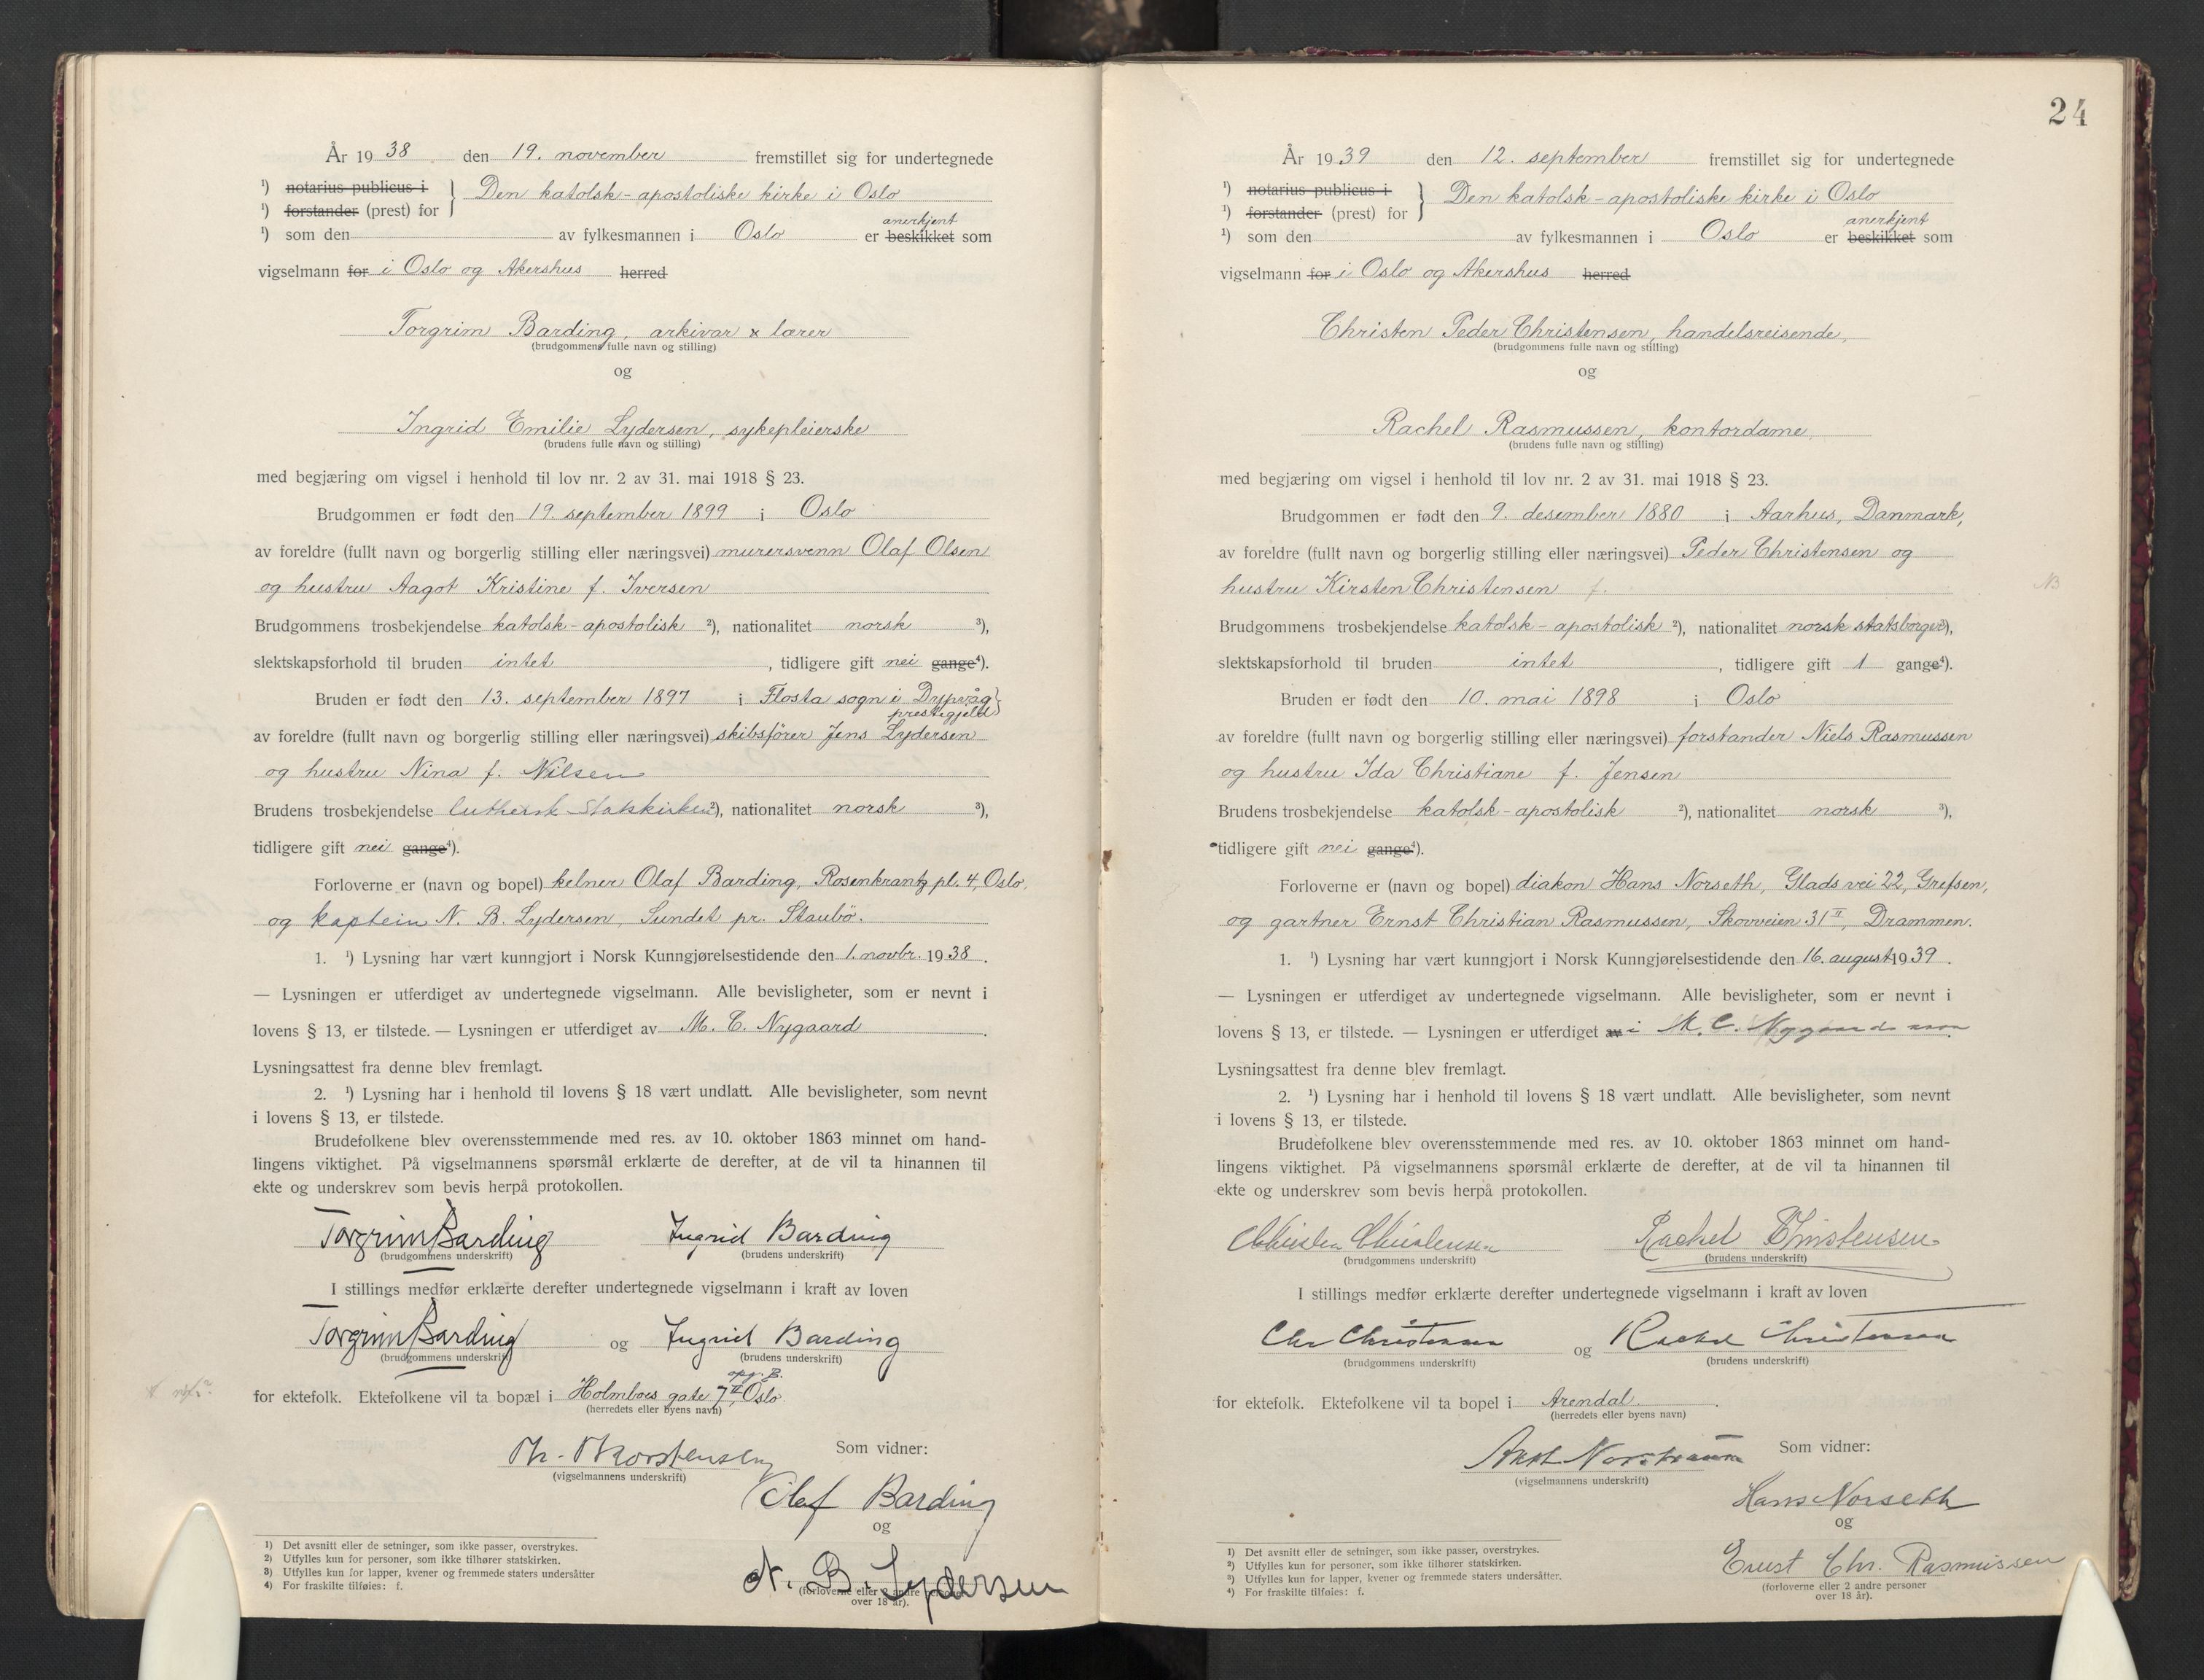 År 1938 den 19. november fremstillet sig for undertegnede
¹) notarius publicus i
¹) forstander (prest) for } Den katolsk-apostoliske kirke i Oslo
anerkjent
¹) som den av fylkesmannen i Oslo er beskikket som
vigselmann for i Oslo og Akershus herred
Torgrim Barding, arkivar x lærer
(brudgommens fulle navn og stilling)
og
Ingrid Emilie Lydersen, sykepleierske
(brudens fulle navn og stilling)
med begjæring om vigsel i henhold til lov nr. 2 av 31. mai 1918 § 23.
Brudgommen er født den 19. september 1899 i Oslo
av foreldre (fullt navn og borgerlig stilling eller næringsvei) murersvenn Olaf Olsen
og hustru Aagot Kristine f. Iversen
Brudgommens trosbekjendelse katolsk-apostolisk ²), nationalitet norsk ³),
slektskapsforhold til bruden intet , tidligere gift nei gange⁴).
Bruden er født den 13. september 1897 i Flosta sogn i Dypvåg
prestegjeld
av foreldre (fullt navn og borgerlig stilling eller næringsvei) skibsfører Jens Lydersen
og hustru Nina f. Nilsen
Brudens trosbekjendelse luthersk Statskirken ²), nationalitet norsk ³),
tidligere gift nei gange⁴).
Forloverne er (navn og bopel) kelner Olaf Barding, Rosenkrantz pl. 4, Oslo,
og kaptein N. B. Lydersen, Sundet pr. Staubö.
1. ¹) Lysning har vært kunngjort i Norsk Kunngjørelsestidende den 1. novbr. 1938.
— Lysningen er utferdiget av undertegnede vigselmann. Alle bevisligheter, som er nevnt i
lovens § 13, er tilstede. — Lysningen er utferdiget av M. C. Nygaard.
Lysningsattest fra denne blev fremlagt.
2. ¹) Lysning har i henhold til lovens § 18 vært undlatt. Alle bevisligheter, som nevnt
i lovens § 13, er tilstede.
Brudefolkene blev overensstemmende med res. av 10. oktober 1863 minnet om hand-
lingens viktighet. På vigselmannens spørsmål erklærte de derefter, at de vil ta hinannen til
ekte og underskrev som bevis herpå protokollen.
Torgrim Barding Ingrid Barding
(brudgommens underskrift) (brudens underskrift)
I stillings medfør erklærte derefter undertegnede vigselmann i kraft av loven
Torgrim Barding og Ingrid Barding
(brudgommens underskrift) (brudens underskrift)
opg. B.
for ektefolk. Ektefolkene vil ta bopæl i Holmboes gate 7 II, Oslo.
(herredets eller byens navn)
Th. Thorstensen Som vidner:
(vigselmannens underskrift)
Olaf Barding
og
N. B. Lydersen
(forloverne eller 2 andre personer
over 18 år).
¹) Det avsnitt eller de setninger, som ikke passer, overstrykes.
²) Utfylles kun for personer, som ikke tilhører statskirken.
³) Utfylles kun for lapper, kvener og fremmede staters undersåtter
⁴) For fraskilte tilføies: f.
24
År 1939 den 12. september fremstillet sig for undertegnede
¹) notarius publicus i
¹) forstander (prest) for } Den katolsk-apostoliske kirke i Oslo
anerkjent
¹) som den av fylkesmannen i Oslo er beskikket som
vigselmann for i Oslo og Akershus herred
Christen Peder Christensen, handelsreisende,
(brudgommens fulle navn og stilling)
og
Rachel Rasmussen, kontordame.
(brudens fulle navn og stilling)
med begjæring om vigsel i henhold til lov nr. 2 av 31. mai 1918 § 23.
Brudgommen er født den 9. desember 1880 i Aarhus, Danmark,
av foreldre (fullt navn og borgerlig stilling eller næringsvei) Peder Christensen og
hustru Kirsten Christensen f. NB
Brudgommens trosbekjendelse katolsk-apostolisk ²), nationalitet norsk statsborger ³),
slektskapsforhold til bruden intet , tidligere gift 1 gange⁴).
Bruden er født den 10. mai 1898 i Oslo
av foreldre (fullt navn og borgerlig stilling eller næringsvei) forstander Niels Rasmussen
og hustru Ida Christiane f. Jensen
Brudens trosbekjendelse katolsk-apostolisk ²), nationalitet norsk ³),
tidligere gift nei gange⁴).
Forloverne er (navn og bopel) diakon Hans Norseth, Glads vei 22, Grefsen,
og gartner Ernst Christian Rasmussen, Skovveien 31 II, Drammen.
1. ¹) Lysning har vært kunngjort i Norsk Kunngjørelsestidende den 16. august 1939.
— Lysningen er utferdiget av undertegnede vigselmann. Alle bevisligheter, som er nevnt i
lovens § 13, er tilstede. — Lysningen er utferdiget av i M. C. Nygaards
Lysningsattest fra denne blev fremlagt.
2. ¹) Lysning har i henhold til lovens § 18 vært undlatt. Alle bevisligheter, som nevnt
i lovens § 13, er tilstede.
Brudefolkene blev overensstemmende med res. av 10. oktober 1863 minnet om hand-
lingens viktighet. På vigselmannens spørsmål erklærte de derefter, at de vil ta hinannen til
ekte og underskrev som bevis herpå protokollen.
Christen Christensen Rachel Christensen
(brudgommens underskrift) (brudens underskrift)
I stillings medfør erklærte derefter undertegnede vigselmann i kraft av loven
Chr Christensen og Rachel Christensen
(brudgommens underskrift) (brudens underskrift)
for ektefolk. Ektefolkene vil ta bopel i Arendal.
(herredets eller byens navn)
Som vidner:
(vigselmannens underskrift)
Hans Norseth
og
Ernst Chr. Rasmussen
(forloverne eller 2 andre personer
over 18 år).
¹) Det avsnitt eller de setninger, som ikke passer, overstrykes.
²) Utfylles kun for personer, som ikke tilhører statskirken.
³) Utfylles kun for lapper, kvener og fremmede staters undersåtter.
⁴) For fraskilte tilføies: f.